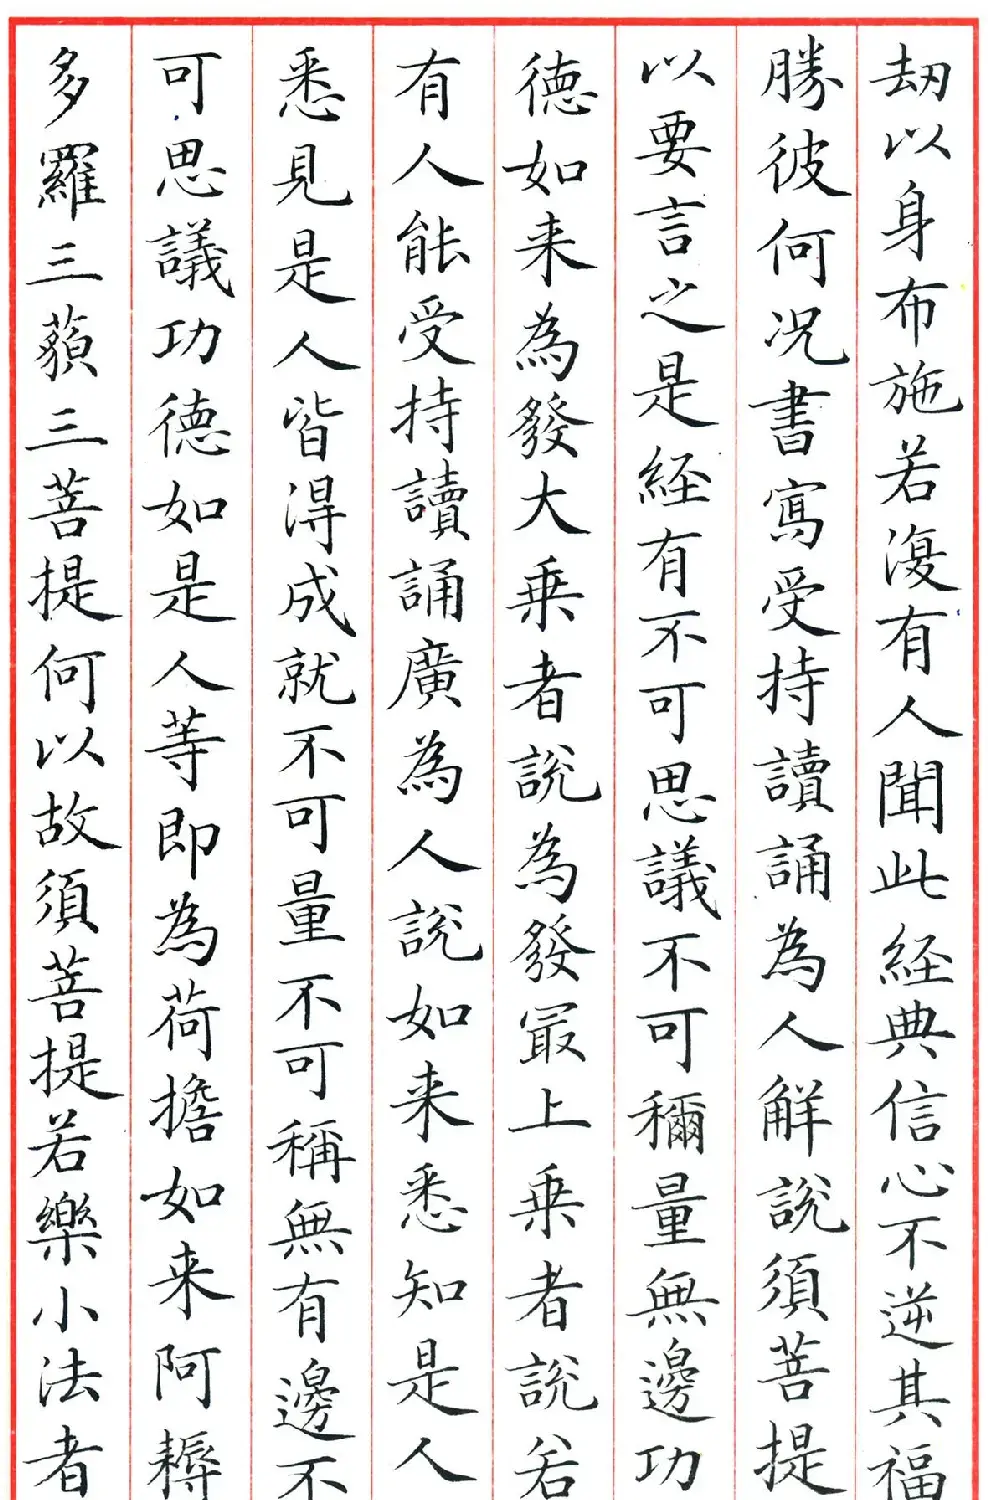 劫以身布施若復有人聞此経典信心不逆其福
勝彼何况書寫受持讀誦為人解說須菩提
以要言之是経有不可思議不可稱量無邊功
德如来為發大乗者說為發冣上乗者說若
有人能受持讀誦廣為人說如来悉知是人
悉見是人皆得成就不可量不可稱無有邊不
可思議功德如是人等即為荷擔如来阿耨
多羅三藐三菩提何以故須菩提若樂小法者